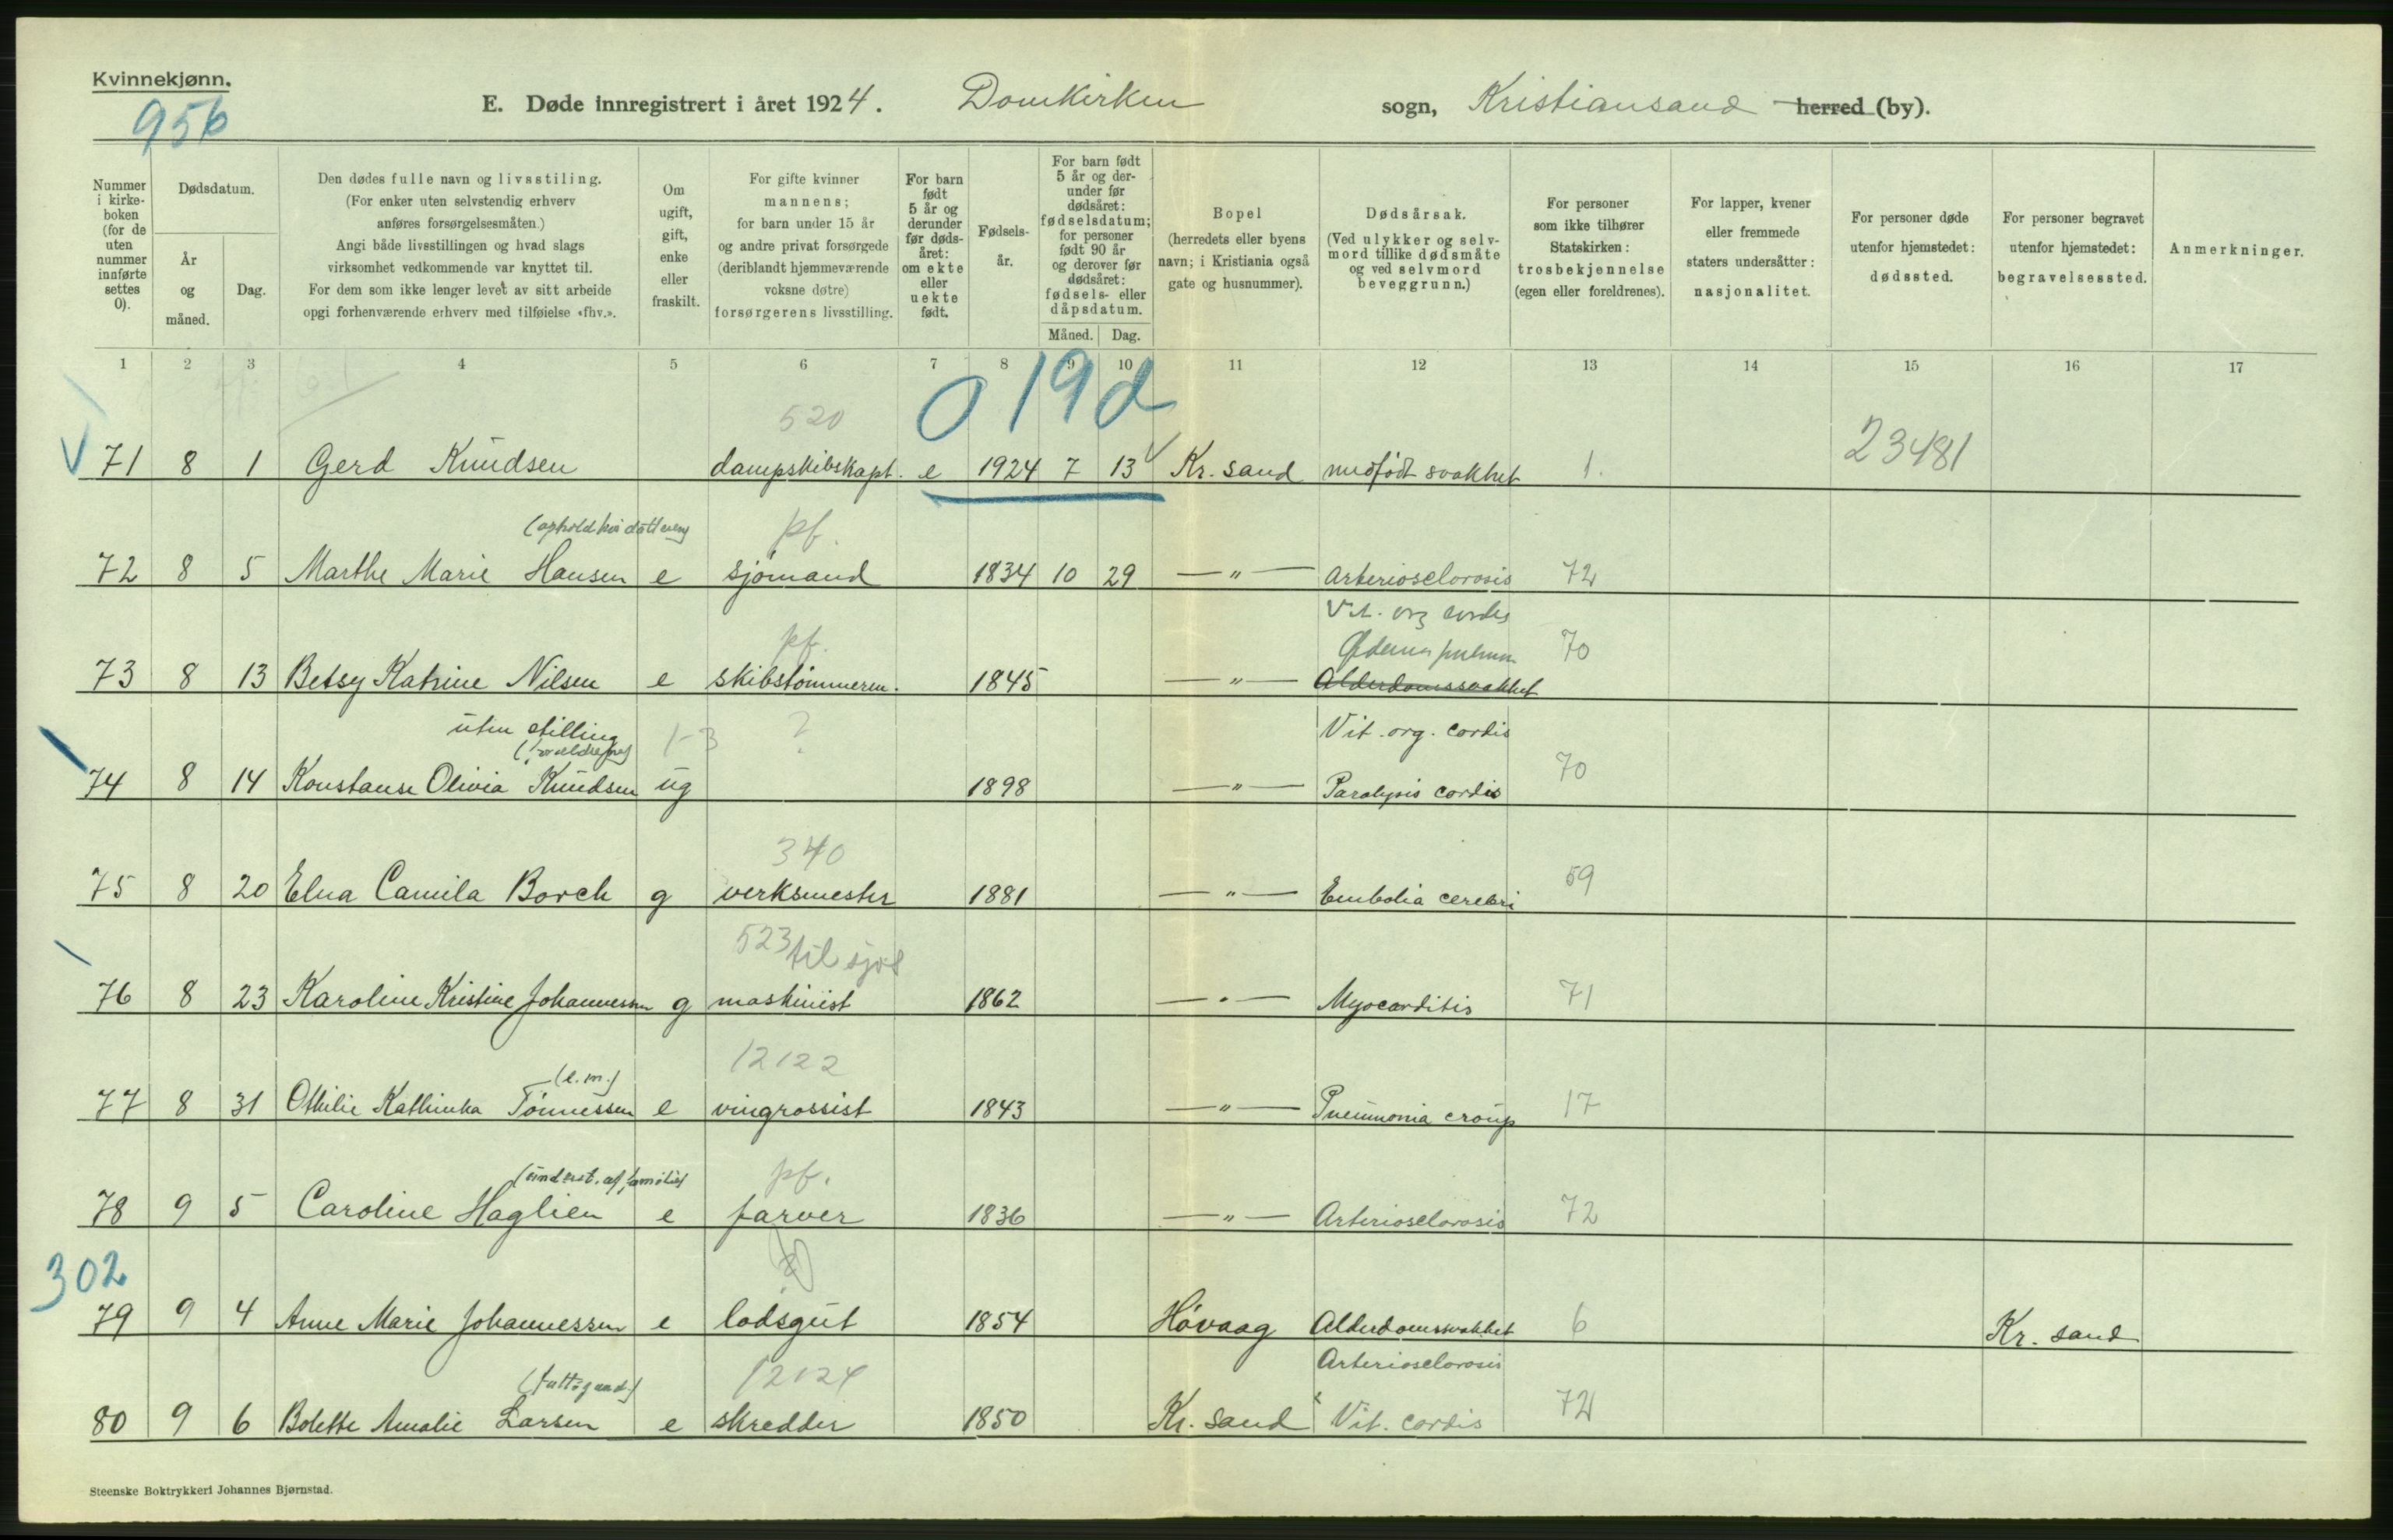 Kvinnekjønn.
956
E. Døde innregistrert i året 1924. Domkirken sogn, Kristiansand herred (by).
Nummer i kirke-boken (for de uten nummer innførte settes 0).
Dødsdatum.
År og måned.
Dag.
Den dødes fulle navn og livsstiling.
(For enker uten selvstendig erhverv
anføres forsørgelsesmåten.)
Angi både livsstillingen og hvad slags
virksomhet vedkommende var knyttet til.
For dem som ikke lenger levet av sitt arbeide
opgi forhenværende erhverv med tilføielse «fhv.».
Om ugift, gift, enke eller fraskilt.
For gifte kvinner
mannens;
for barn under 15 år
og andre privat forsørgede
(deriblandt hjemmeværende
voksne døtre)
forsørgerens livsstilling.
For barn født 5 år og derunder før døds-året: om ekte eller uekte født.
Fødsels-år.
For barn født 5 år og der-under før dødsåret: fødselsdatum; for personer født 90 år og derover før dødsåret: fødsels- eller dåpsdatum.
Måned. Dag.
Bopel
(herredets eller byens
navn; i Kristiania også
gate og husnummer).
Dødsårsak.
(Ved ulykker og selv-
mord tillike dødsmåte
og ved selvmord
beveggrunn.)
For personer
som ikke tilhører
Statskirken:
trosbekjennelse
(egen eller foreldrenes).
For lapper, kvener
eller fremmede
staters undersåtter:
nasjonalitet.
For personer døde
utenfor hjemstedet:
dødssted.
For personer begravet
utenfor hjemstedet:
begravelsessted.
Anmerkninger.
1 2 3 4 5 6 7 8 9 10 11 12 13 14 15 16 17
019d
520
71 8 1 Gerd Knudsen dampskibskapt. e 1924 7 13 Kr. sand medfödt svakhet 1. 23481
(ophold hos datteren) pf.
72 8 5 Marthe Marie Hansen e sjömand 1834 10 29 —"— Arteriosclorosis 72
Vit. org cordis
pf. Ødema pulmon 70
73 8 13 Betsy Katrine Nilsen e skibstömmerm. 1845 —"— Alderdomssvakhet
uten stilling 1-3 ? Vit. org. cordis
(forældrene) 70
74 8 14 Konstanse Olivia Knudsen ug 1898 —"— Paralysis cordis
340
75 8 20 Elna Camila Borch g verksmester 1881 —"— Embolia cerebri 59
523 til sjøs
76 8 23 Karoline Kristine Johannessen g maskinist 1862 —"— Myocarditis 71
(e.m.) 12122
77 8 31 Othilie Kathinka Tönnessen e vingrossist 1843 —"— Pneumonia croup 17
(underst. af familie) pf.
78 9 5 Caroline Haglien e farver 1836 —"— Arteriosclorosis 72
302
79 9 4 Anne Marie Johannessen e lodsgut 1854 Hövaag Alderdomssvakhet 6 Kr. sand
Arteriosclorosis
(fattigund.) 12124
80 9 6 Bolette Amalie Larsen e skredder 1850 Kr. sand Vit. cordis 72
Steenske Boktrykkeri Johannes Bjørnstad.